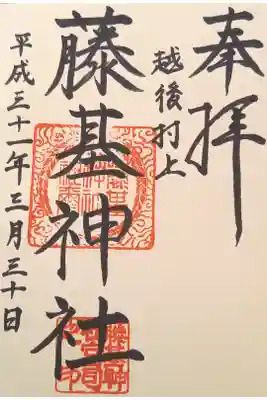 奉拝
越後村上
藤基神社
平成三十一年三月三十日